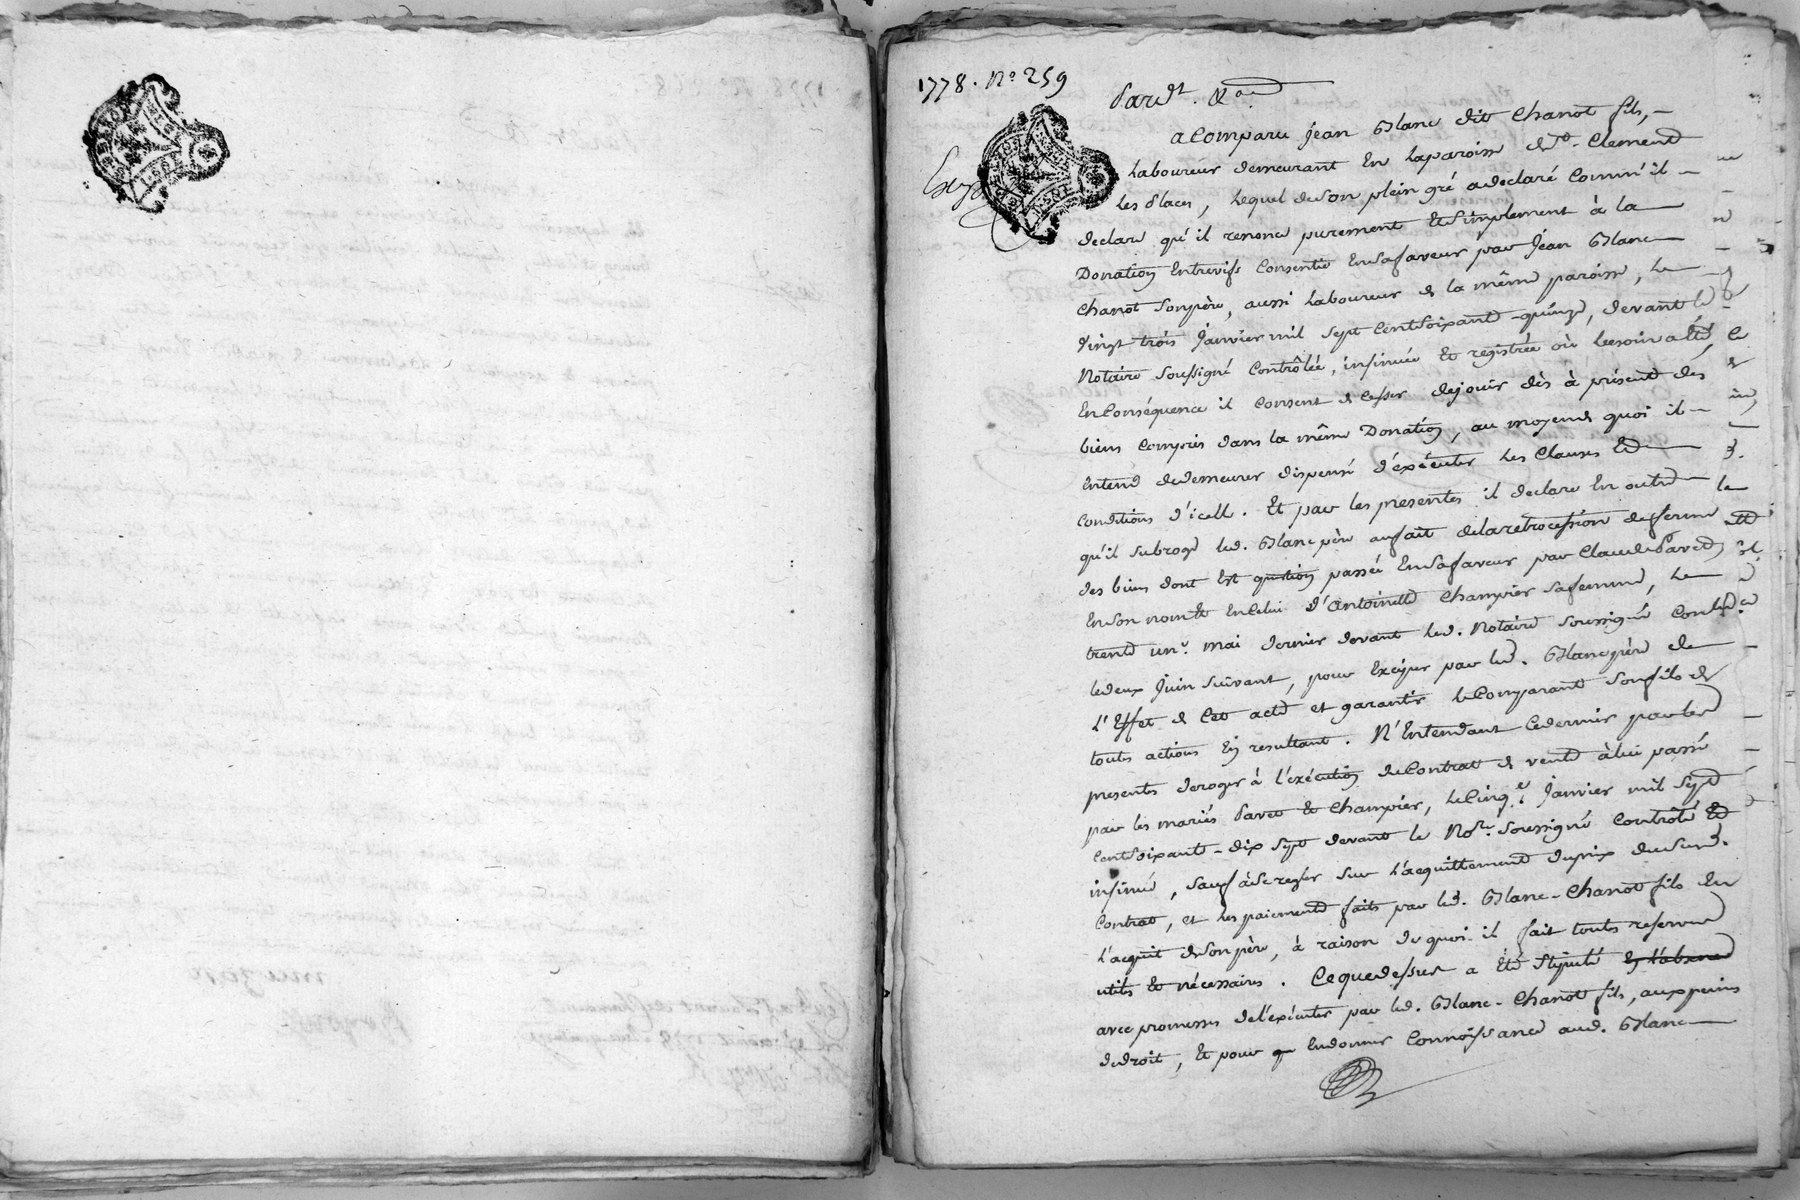 1778. No. 259
Pardt. &a
a Comparu jean Blanc dit Chanot fils,
Laboureur demeurant en la paroisse de St. Clement
les places, lequel de son plein gré a declaré comm'il
declare qu'il renonce purement et simplement à la
Donation Entrevifs Consentie En sa faveur par Jean Blanc
Chanot son père, aussi Laboureur de la même paroisse, le
vingt trois Janvier mil sept cent soixante-quinze, devant le
Notaire soussigné Contrôlée, insinuée et registrée où besoin a été,
En Conséquence il Consent de Cesser de jouir dès à présent des
biens Compris dans la même Donation, au moyen de quoi il
entend de demeurer dispensé d'exécuter les Clauses et
conditions d'icelle. Et par les presentes il declare En outre
qu'il subroge led. Blanc père au fait de la retrocession de ferme
des biens dont Est question passée En sa faveur par Claude Pavet
En son nom et en Celui d'Antoinette Champier sa femme, le
trente un. mai dernier devant led. Notaire soussigné Contrôlée
le deux Juin suivant, pour Exciper par led. Blanc père de
l'Effet de Cet acte et garantir le Comparant son fils de
toutes actions En resultant. N'Entendant Ce dernier par les
presentes deroger à l'exécution du Contrat de vente à lui passé
par les mariés Pavet et Champier, le Cinq. Janvier mil sept
cent soixante-dix sept devant le Nore. soussigné Contrôlé et
insinué, sauf à se regler sur l'acquittement du prix du susd.
Contrat, et les paiements faits par led. Blanc-Chanot fils En
l'acquit de son père, à raison de quoi il fait toutes reserves
utiles et nécessaires. Ce que dessus a été Stipulé En l'absence
avec promesses de l'exécuter par led. Blanc-Chanot fils, aux peines
de droit, Et pour En donner Connoissance aud. Blanc